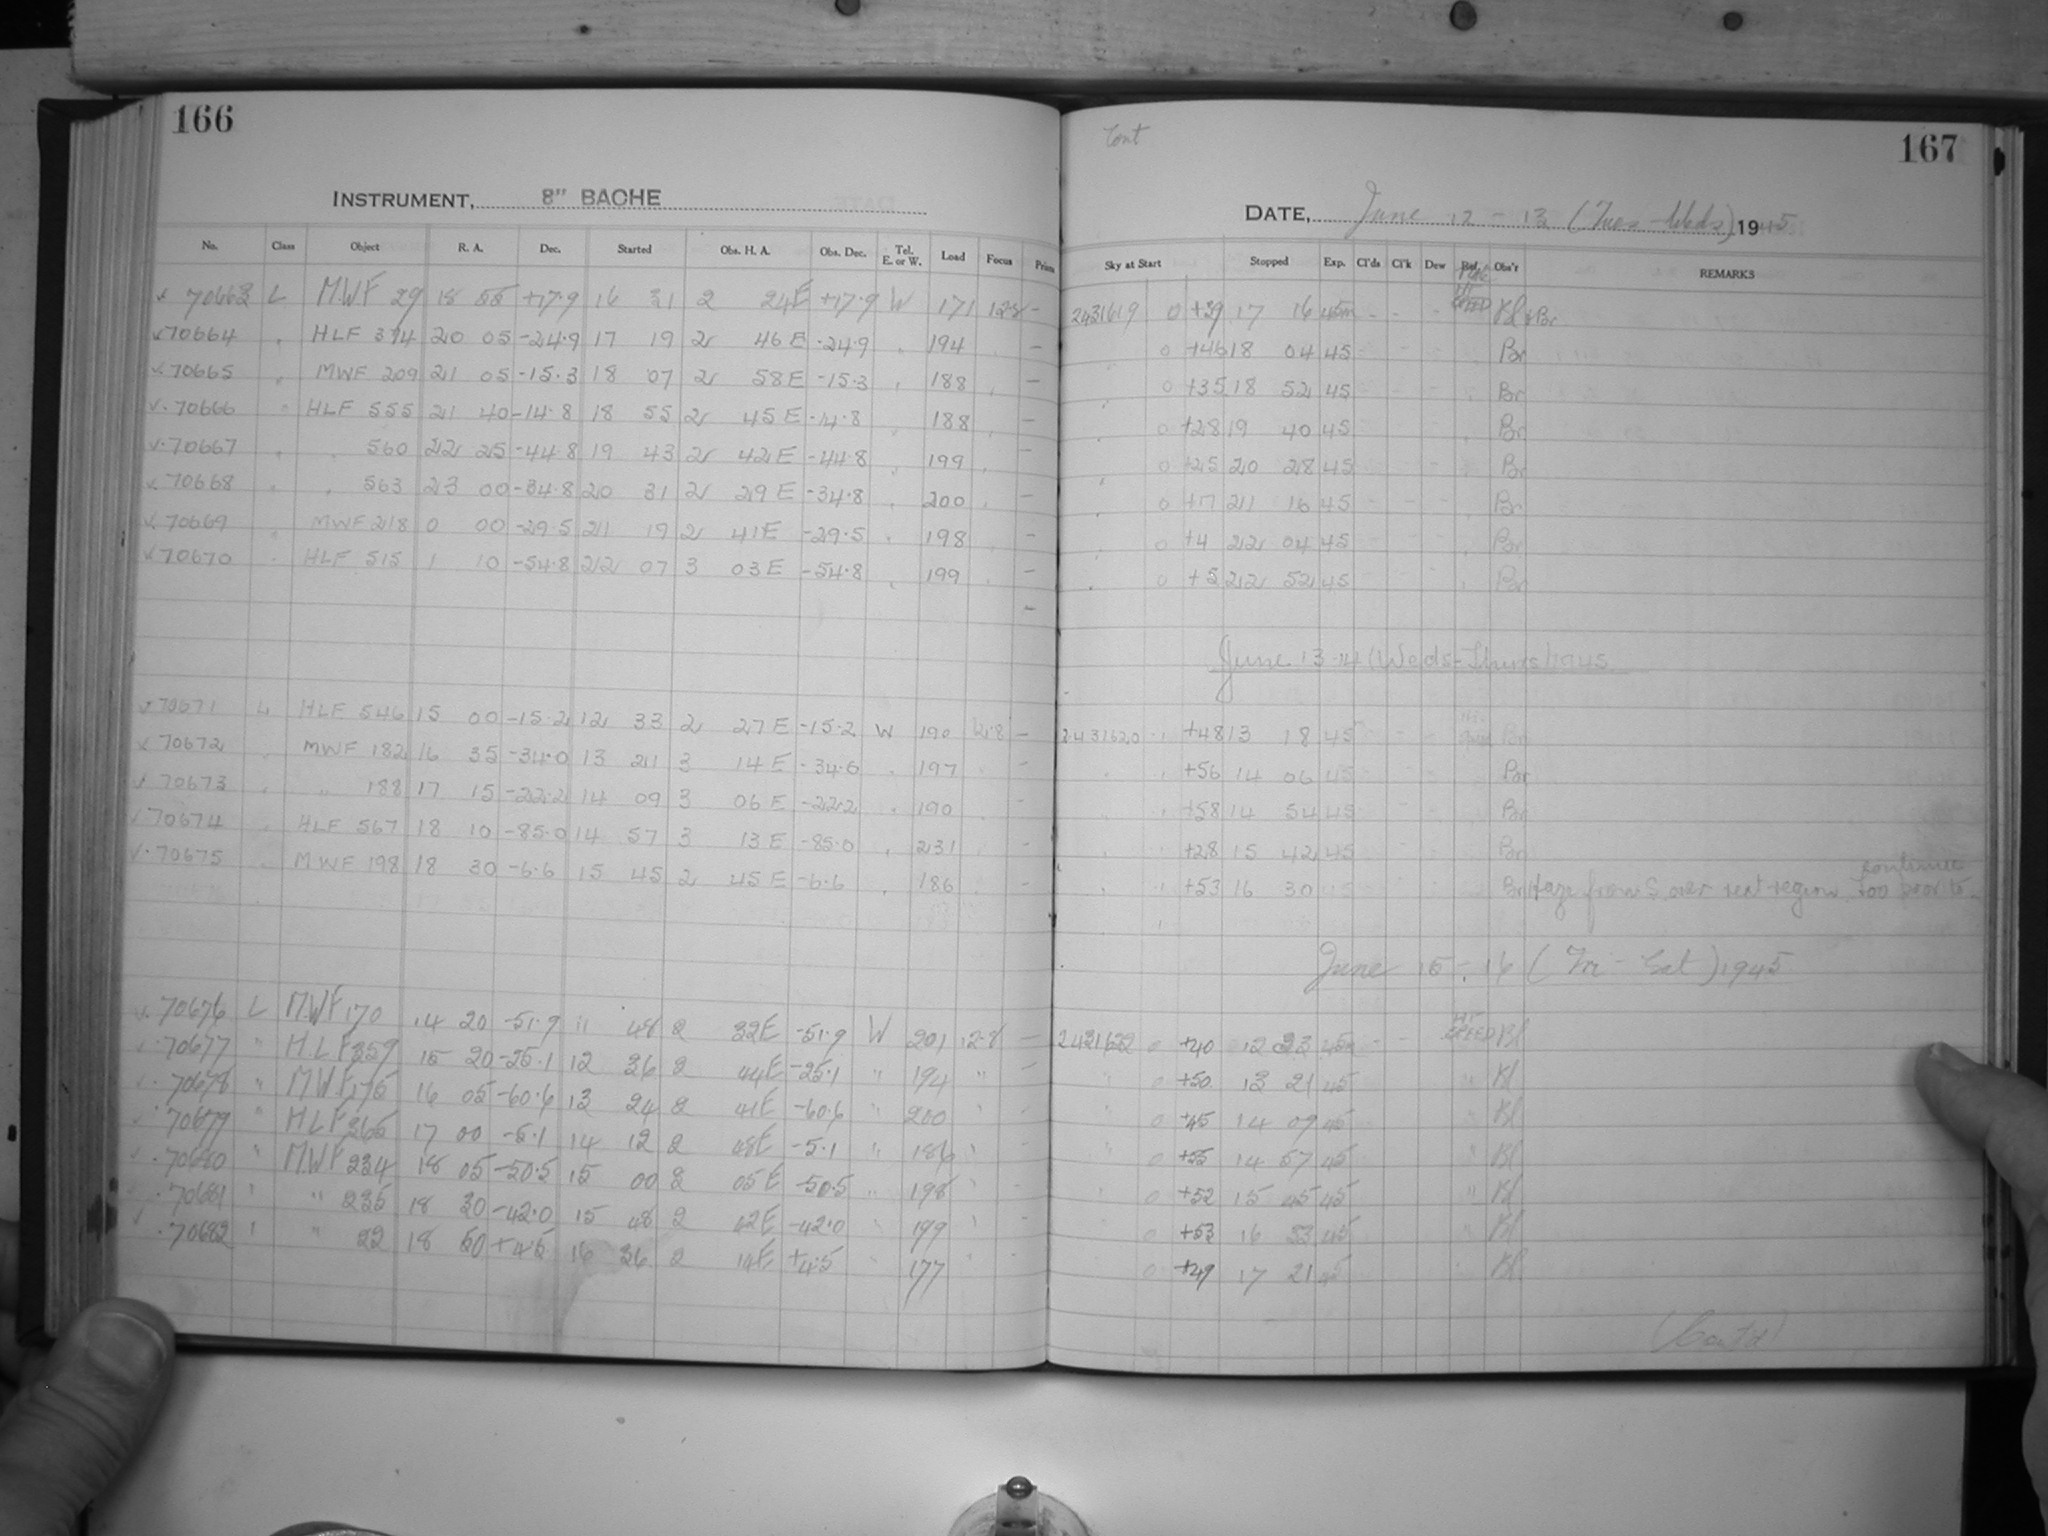 166
INSTRUMENT, 8" BACHE
No. Class Object R. A. Dec. Started Obs. H. A. Obs. Dec. Tel. E. or W. Load Focus Prism
70663 L MWF 29 18 55 +17.9 16 31 2 24E +17.9 W 171 12.8 -
70664 HLF 394 20 05 -24.9 17 19 2 46 E -24.9 194 -
70665 MWF 209 21 05 -15.3 18 07 2 58E -15.3 188 -
70666 HLF 555 21 40 -14.8 18 55 2 45 E -14.8 188 -
70667 560 22 25 -44.8 19 43 2 42E -44.8 199 -
70668 563 23 00 -34.8 20 31 2 29 E -34.8 200 -
70669 MWF 218 0 00 -29.5 21 19 2 41E -29.5 198 -
70670 HLF 515 1 10 -54.8 22 07 3 03E -54.8 199 -
70671 L HLF 546 15 00 -15.2 12 33 2 27 E -15.2 W 190 12.8 -
70672 MWF 182 16 35 -34.0 13 21 3 14 E 197 -
70673 " 188 17 15 -22.2 14 09 3 06 E -22.2 190 -
70674 HLF 567 18 10 -85.0 14 57 3 13 E -85.0 231 -
70675 MWF 198 18 30 -6.6 15 45 2 45 E -6.6 186 -
70676 L MWF 170 14 20 -51.9 11 48 2 32E -51.9 W 201 12.8 -
70677 " HLF 359 15 20 -25.1 12 36 2 44E -25.1 " 194 " -
70678 " MWF 175 16 05 -60.6 13 24 2 41E -60.6 " 200 " -
70679 " HLF 365 17 00 -5.1 14 12 2 48E -5.1 " 186 " -
70680 " MWF 234 18 05 -50.5 15 00 2 05E -50.5 " 198 " -
70681 " " 235 18 30 -42.0 15 48 2 42E -42.0 " 199 " -
70682 " " 22 18 50 +4.5 16 36 2 14E +4.5 " 177 " -
Cont
167
DATE, June 12 - 13 (Tues - Weds) 1945
Sky at Start Stopped Exp. Cl'ds Cl'k Dew Ref. Obs'r REMARKS
2431619 0 +39 17 16 45m - - - Bl & Br
0 +46 18 04 45 Br
0 +35 18 52 45 Br
0 +28 19 40 45 Br
0 +25 20 28 45 Br
0 +17 21 16 45 Br
0 +4 22 04 45 Br
0 +5 22 52 45 Br
June 13-14 (Weds-Thurs) 1945
2431620 +48 13 18 45 Br
+56 14 06 45 Br
+58 14 54 45 Br
+28 15 42 45 Br
+53 16 30 45 Br Haze from S over next region too poor to continue
June 15 - 16 (Fri - Sat) 1945
2431622 0 +40 12 33 45m - - HT SPEED Bl
0 +50 13 21 45 " Bl
0 +45 14 09 45 Bl
0 +55 14 57 45 " Bl
0 +52 15 45 45 " Bl
0 +53 16 33 45 " Bl
0 +49 17 21 45 Bl
(Contd)